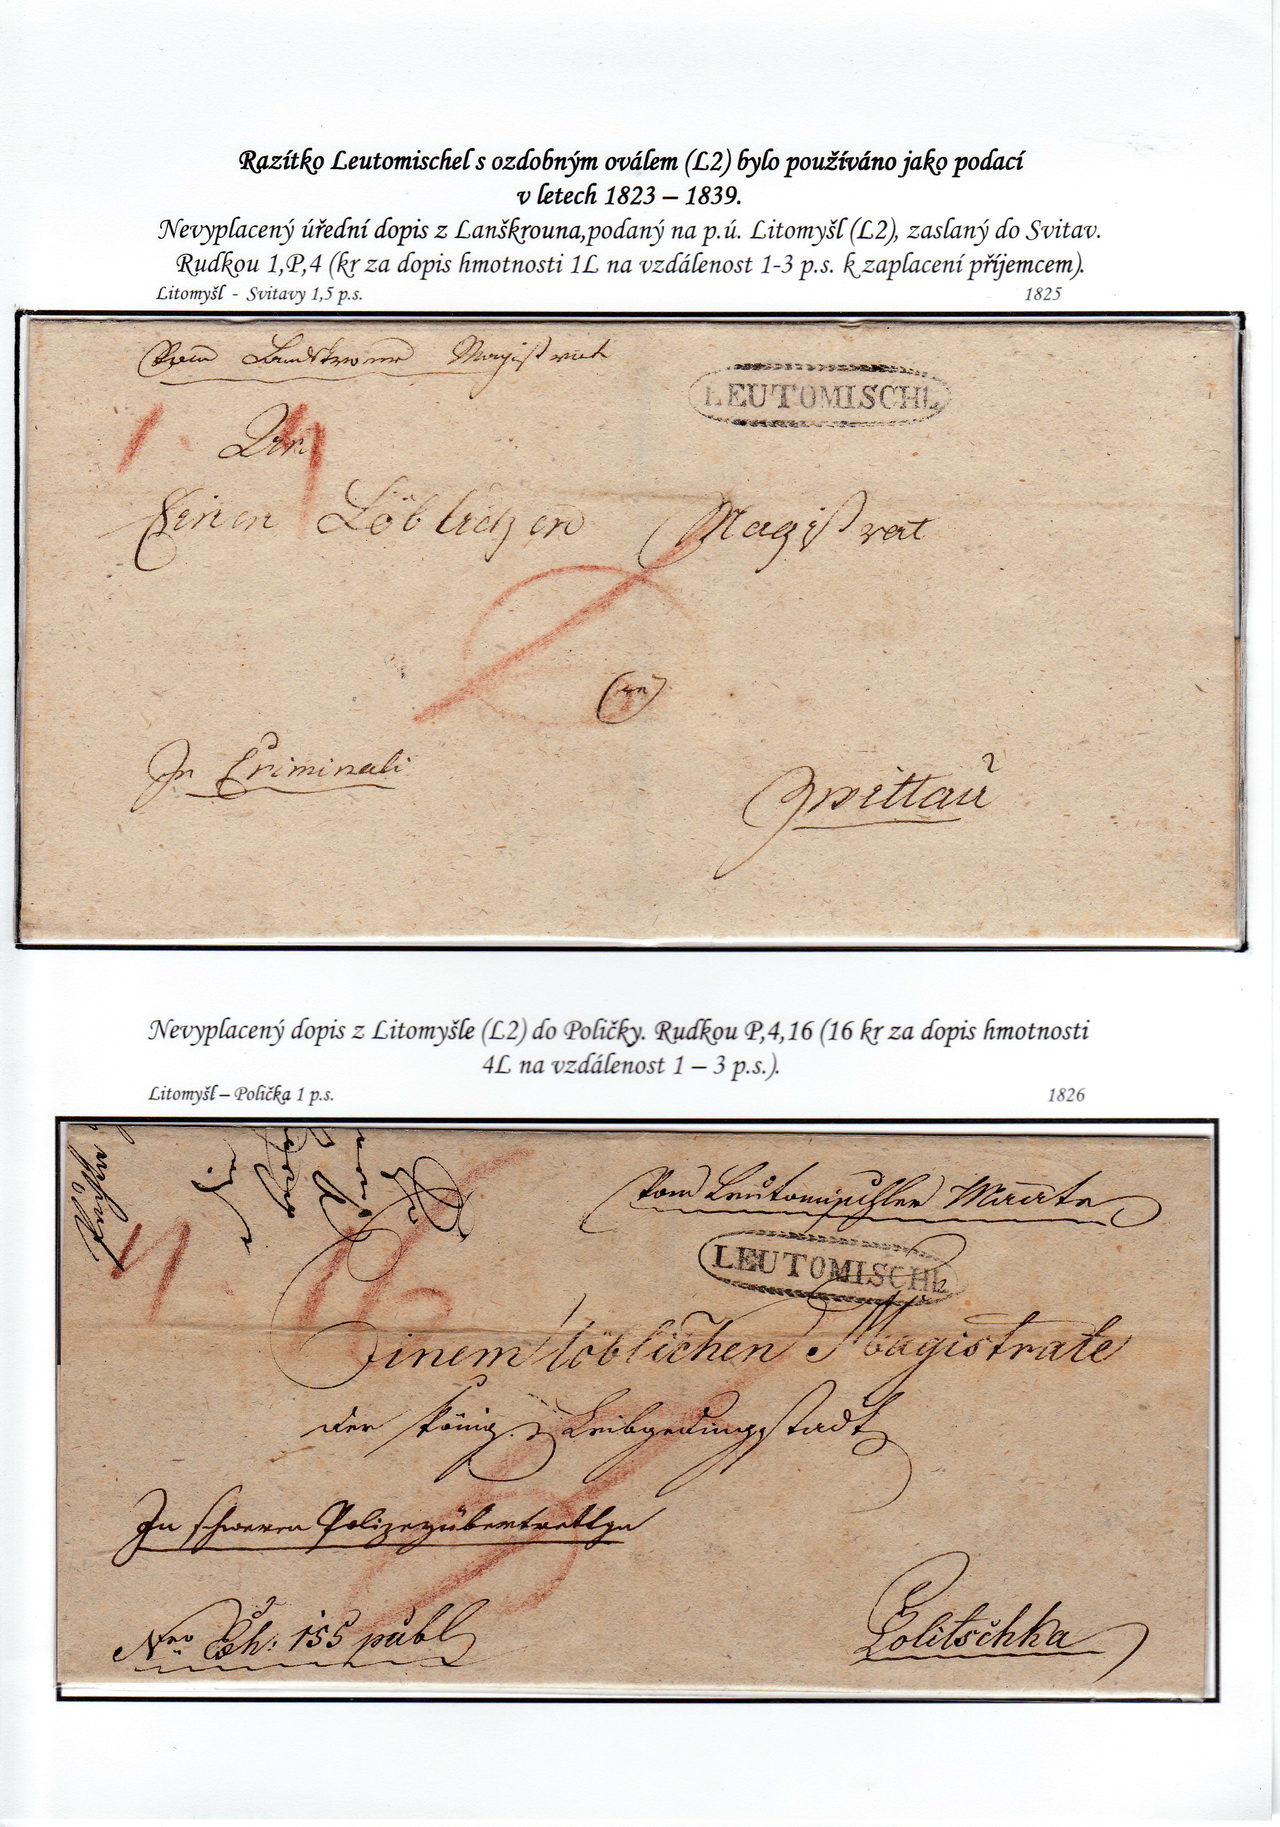 Razítko Leutomischel s ozdobným oválem (L2) bylo používáno jako podací
v letech 1823 – 1839.
Nevyplacený úřední dopis z Lanškrouna,podaný na p.ú. Litomyšl (L2), zaslaný do Svitav.
Rudkou 1,P,4 (kr za dopis hmotnosti 1L na vzdálenost 1-3 p.s. k zaplacení příjemcem).
Litomyšl - Svitavy 1,5 p.s. 1825
Vom Landskroner Magistrat
LEUTOMISCHL
1 4
An
Einen Löblichen Magistrat
in
In Criminali
Zwittau
Nevyplacený dopis z Litomyšle (L2) do Poličky. Rudkou P,4,16 (16 kr za dopis hmotnosti
4L na vzdálenost 1 – 3 p.s.).
Litomyšl – Polička 1 p.s. 1826
Vom Leutomischler
LEUTOMISCHL
4 16
Einem löblichen Magistrate
der königl Leibgedingstadt
In schweren
Nro Exh: 155 publ
Politschka